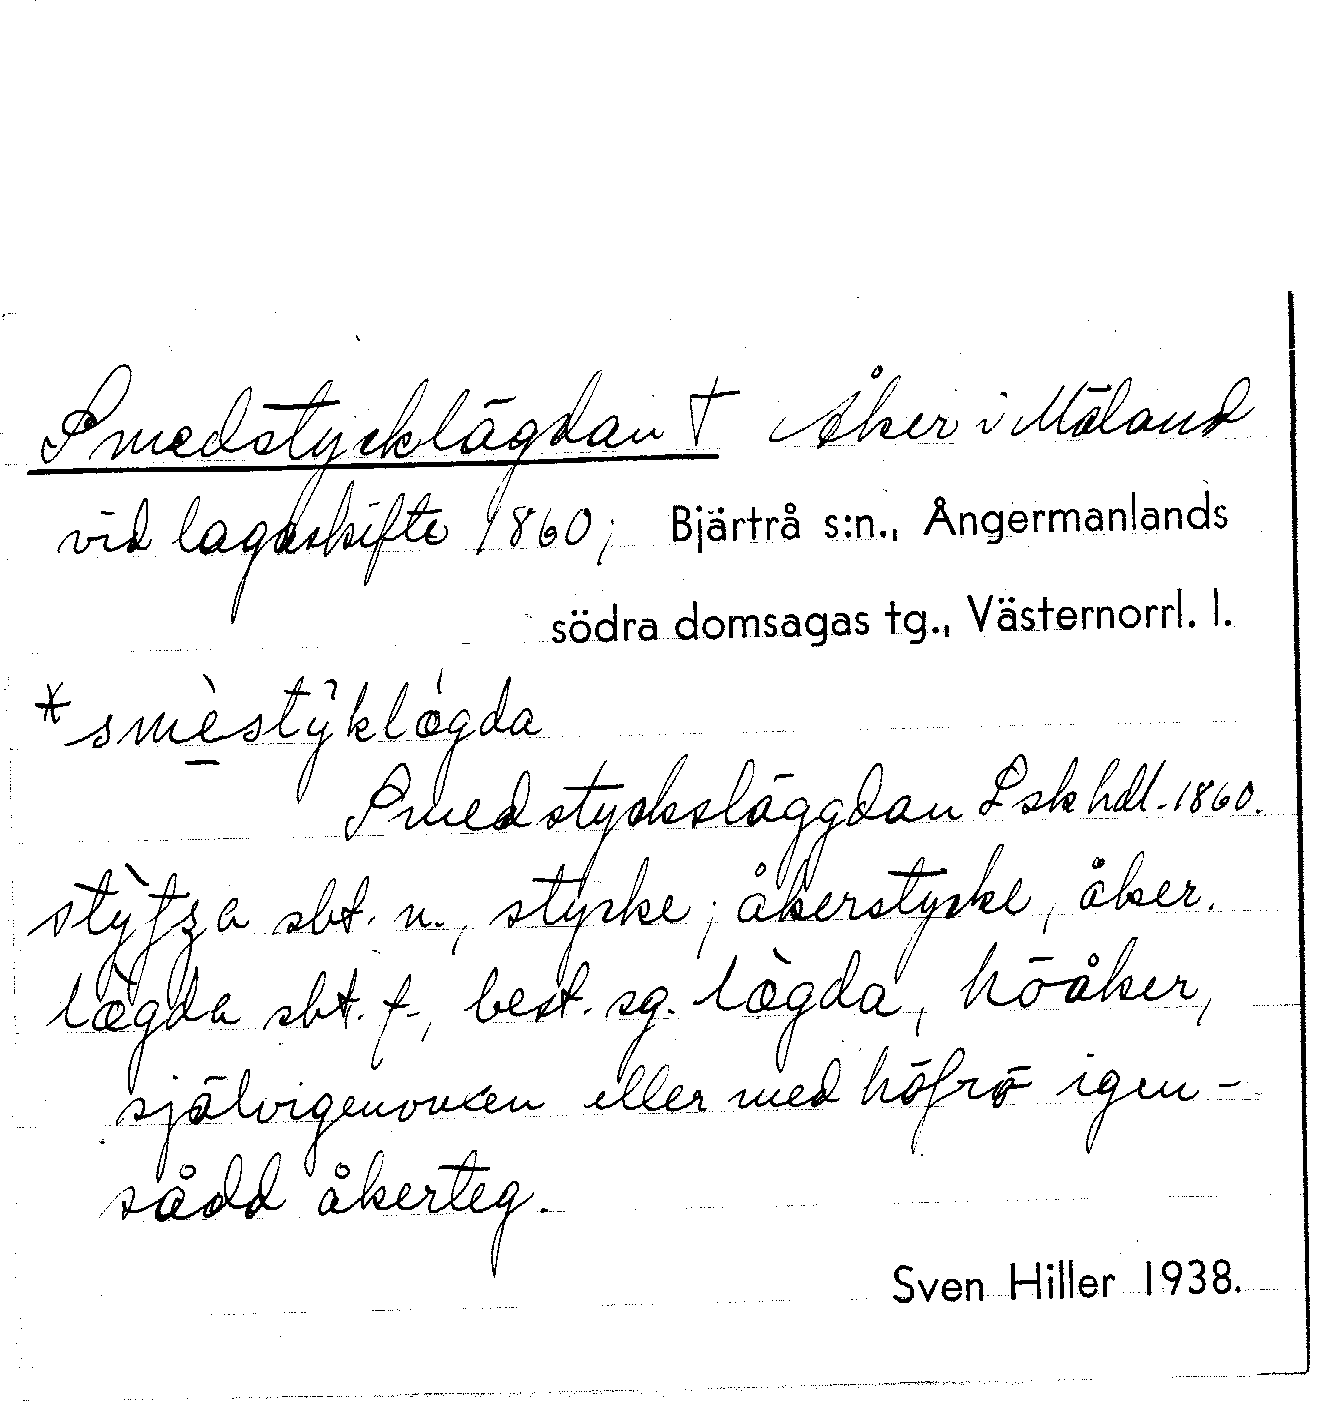 Smedstycklägdan † Åker i Mäland
vid lagaskifte 1860; Bjärtrå s:n., Ångermanlands
södra domsagas tg., Västernorrl. l.
* smèstýklǽgda
Smedstycksläggdan Lskhdl. 1860.
sbt. n., stycke; åkerstycke, åker.
lægda sbt. f., best. sg. lægda, höåker,
självigenvuxen eller med höfrö igen-
sådd åkerteg.
Sven Hiller 1938.